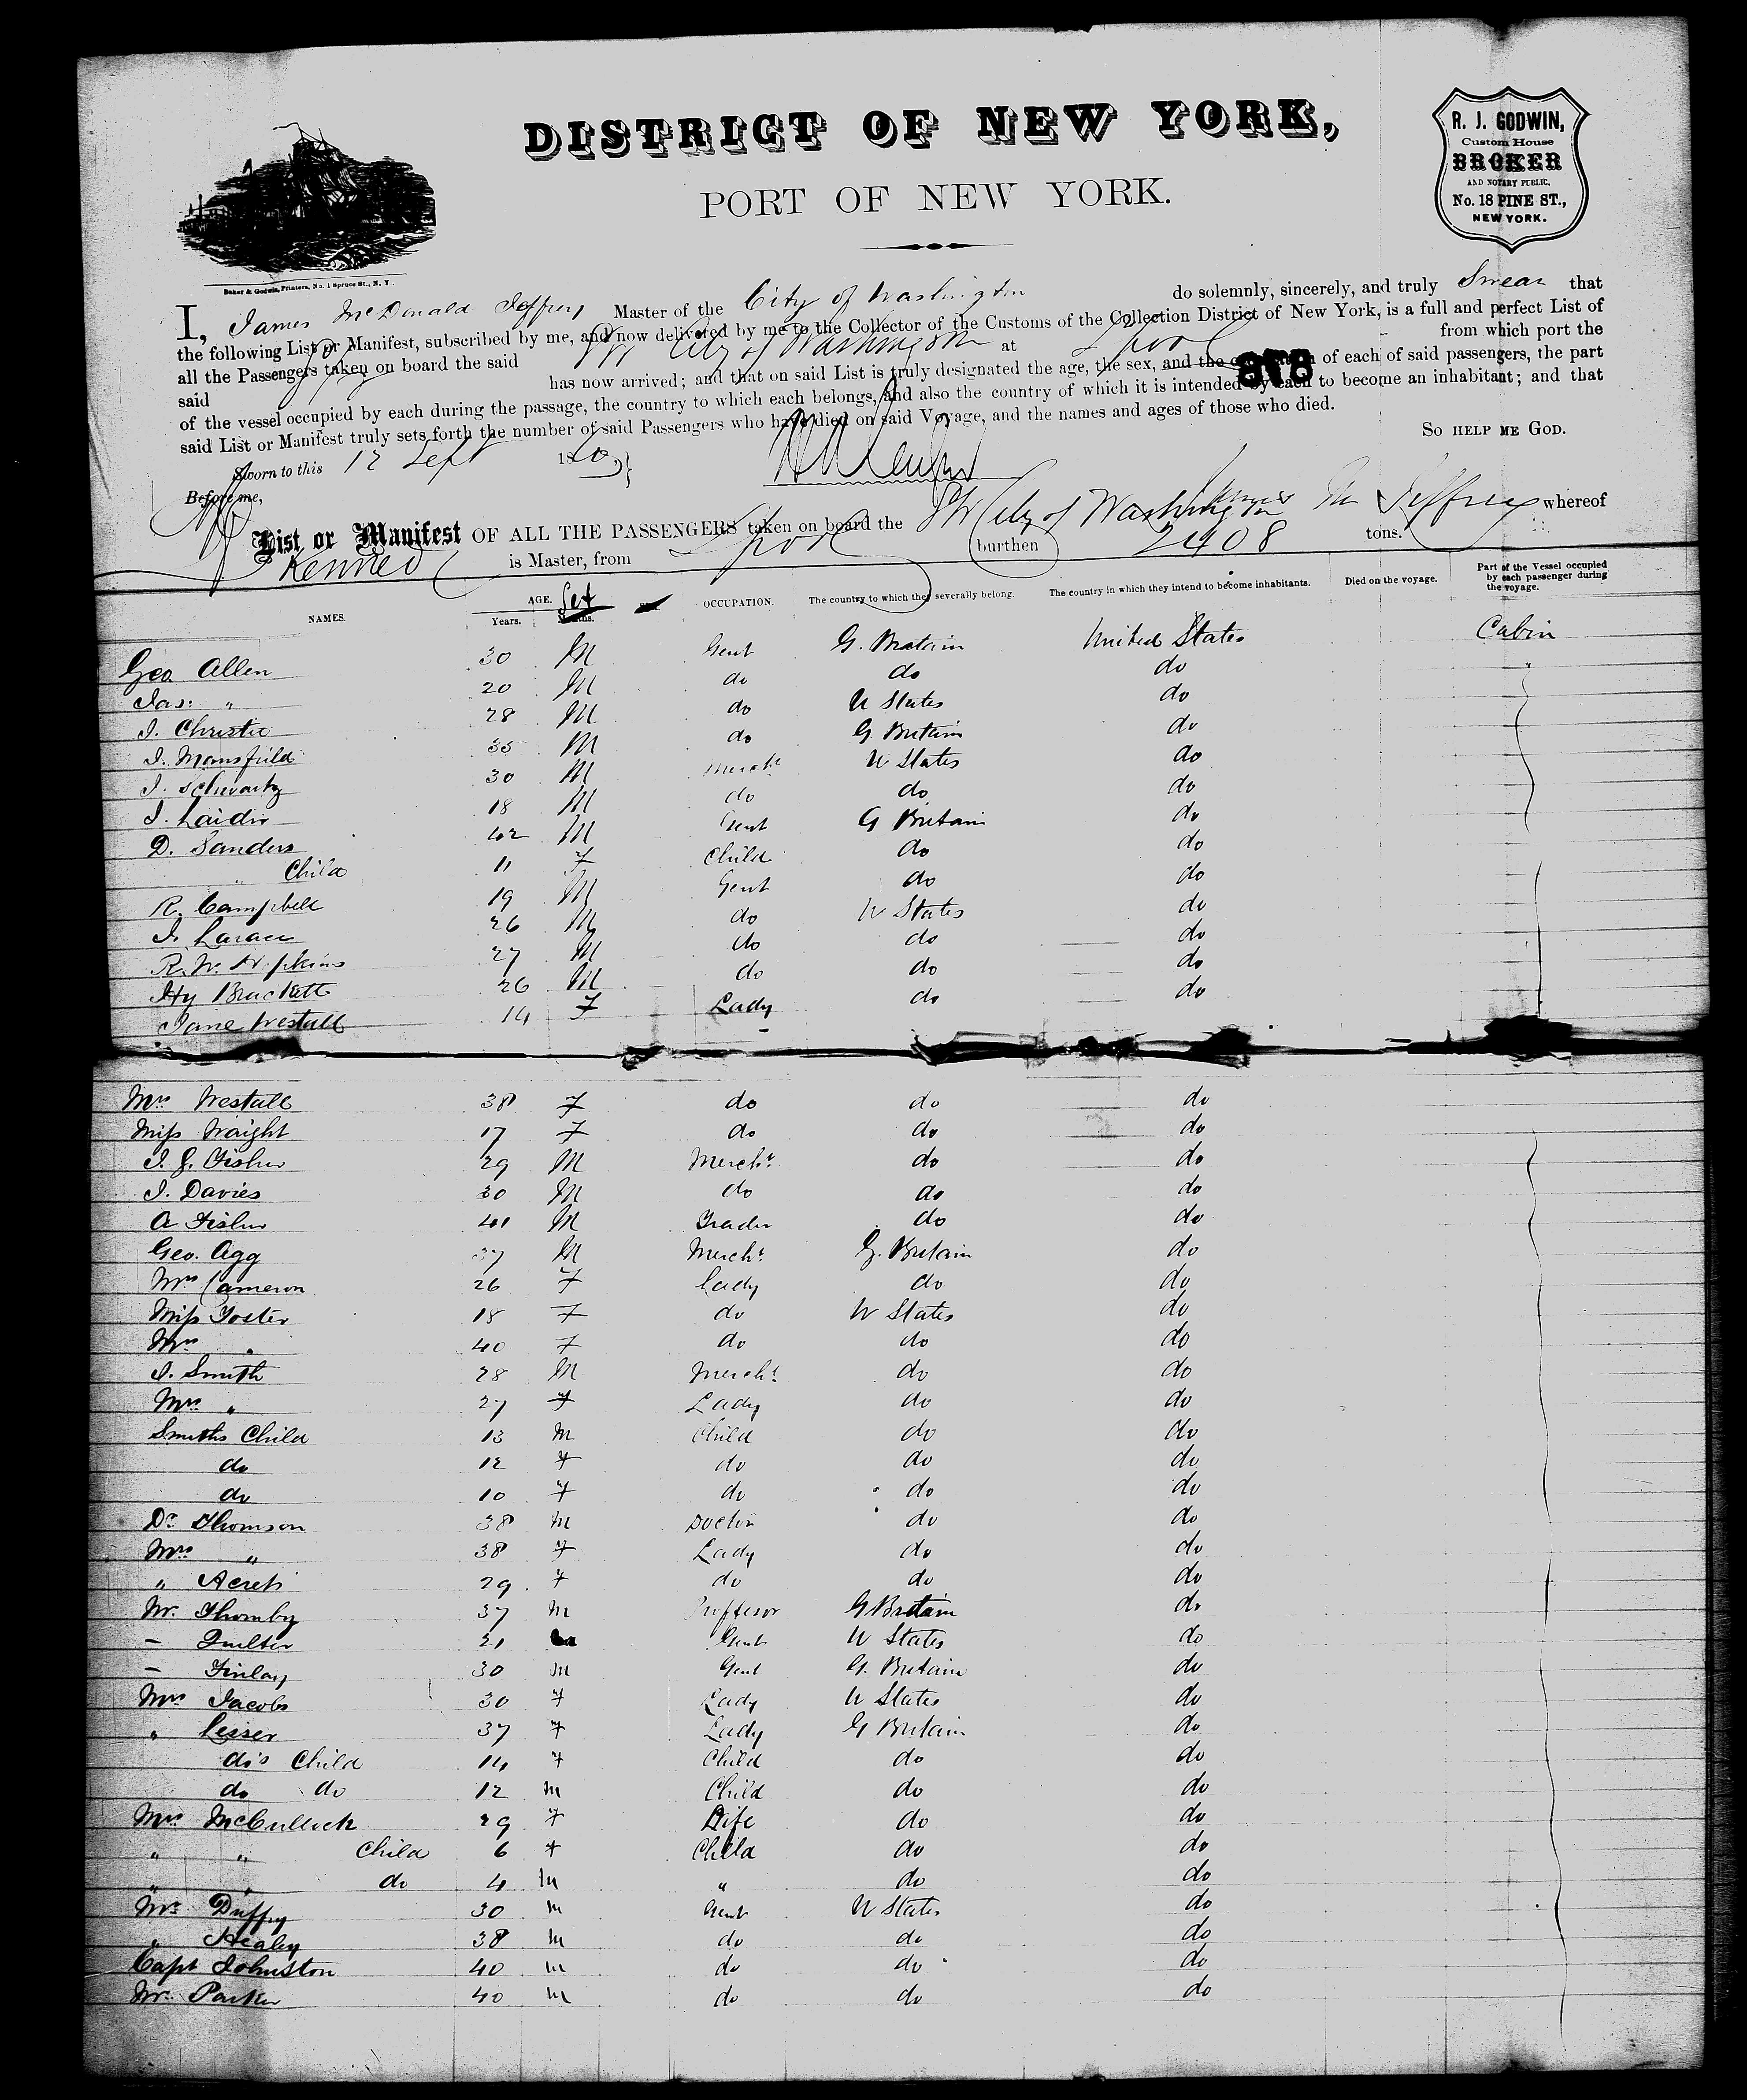 DISTRICT OF NEW YORK,
PORT OF NEW YORK.
R. J. GODWIN,
Custom House
BROKER
AND NOTARY PUBLIC,
No. 18 PINE ST.,
NEW YORK.
Baker & Godwin, Printers, No. 1 Spruce St., N. Y.
I, James McDonald Jeffrey Master of the City of Washington do solemnly, sincerely, and truly Swear that
the following List or Manifest, subscribed by me, and now delivered by me to the Collector of the Customs of the Collection District of New York, is a full and perfect List of
all the Passengers taken on board the said City of Washington at Lpool from which port the
said has now arrived; and that on said List is truly designated the age, the sex, and the of each of said passengers, the part
of the vessel occupied by each during the passage, the country to which each belongs, and also the country of which it is intended by each to become an inhabitant; and that
said List or Manifest truly sets forth the number of said Passengers who have died on said Voyage, and the names and ages of those who died.
878
SO HELP ME GOD.
Sworn to this 12 Sept 18
Before me,
List or Manifest OF ALL THE PASSENGERS taken on board the City of Washington James M Jeffrey whereof
is Master, from Lpool burthen 2408 tons.
NAMES. AGE. Years. Months. Sex OCCUPATION. The country to which they severally belong. The country in which they intend to become inhabitants. Died on the voyage. Part of the Vessel occupied by each passenger during the voyage.
Geo Allen 30 M Gent G. Britain United States Cabin
Jas: " 20 M do do do "
J. Christie 28 M do U States do
J. Mansfield 35 M do G. Britain do
J. Schwartz 30 M Mercht U States do
J. 18 M do do do
D. Sanders 42 M Gent G Britain do
" Child 11 F Child do do
R. Campbell 19 M Gent do do
J. 26 M do U States do
R. W. Hopkins 27 M do do do
Hy Brackett 26 M do do do
Jane Westall 14 F Lady do do
Mrs Westall 38 F do do do
Miss Waight 17 F do do do
J. G. Fisher 29 M Mercht do do
J. Davies 30 M do do do
A Fisher 41 M Trader do do
Geo. Agg 37 M Mercht G. Britain do
Mrs Cameron 26 F Lady do do
Miss Foster 18 F do U States do
Mrs " 40 F do do do
J. Smith 28 M Mercht do do
Mrs " 27 F Lady do do
Smiths Child 13 M Child do do
do 12 F do do do
do 10 F do do do
Dr Thomson 38 M Doctor do do
Mrs " 38 F Lady do do
" 29 F do do do
Mr. Thornby 37 M Proffesor G Britain do
— 21 Gent U States do
— Finlay 30 M Gent G. Britain do
Mrs Jacobs 30 F Lady U States do
" Lesser 37 F Lady G Britain do
do's Child 14 F Child do do
do do 12 M Child do do
Mrs McCulloch 29 F Wife do do
" " Child 6 F Child do do
" " do 4 M " do do
Mr. Duffy 30 M Gent U States do
" Healey 38 M do do do
Capt Johnston 40 M do do do
Mr. Parker 40 M do do do